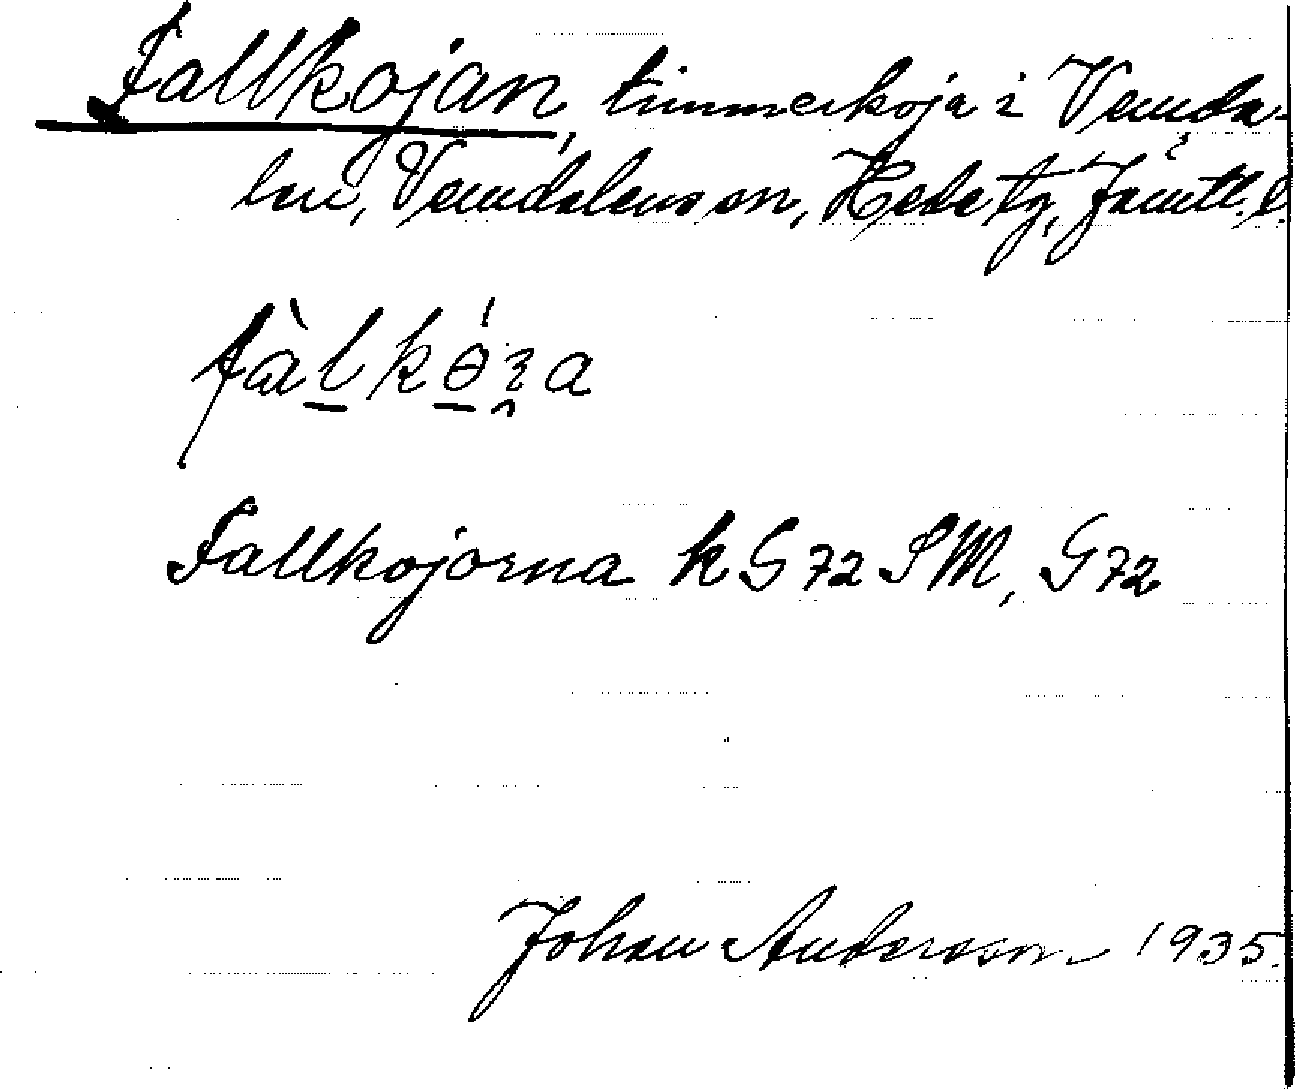 Fallkojan, timmerkoja i Vemda-
len, Vemdalens sn, Hede tg, Jämtl. l.
fàlkóza
Fallkojorna k G 72 SM, G 72
Johan Andersson 1935.